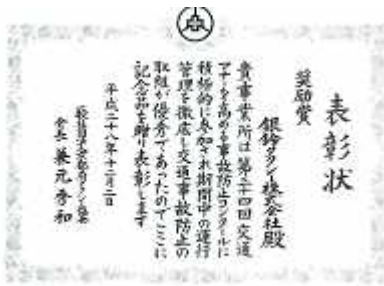 表彰状
奨励賞
銀鈴タクシー株式会社殿
貴事業所は第二十四回交通
マナーを高める事故防止コンクールに
積極的に参加され期間中の運行
管理を徹底し交通事故防止の
取組が優秀であったのでここに
記念品を贈り表彰します
平成二十八年十二月二日
会長 兼元秀和